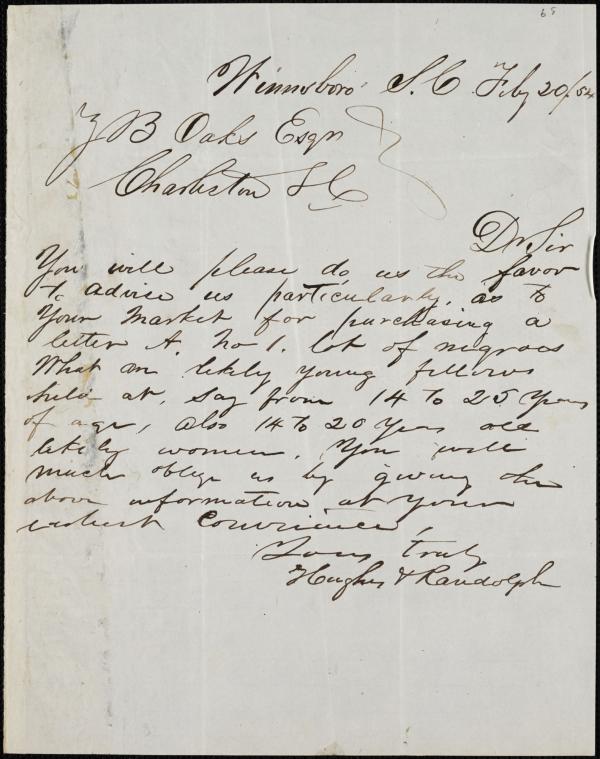 68
Winnsboro S.C. Feby 20/54
Z B Oaks Esqr
Charleston S C
Dr Sir
You will please do us the favor
to advise us particularly, as to
Your Market for purchasing a
letter A. No 1. lot of negroes
What are likely young fellows
held at, say from 14 to 25 Years
of age, also 14 to 20 Years old
likely women. You will
much oblige us by giving the
above information at your
earliest convenience,
Yours truly
Hughes & Randolph